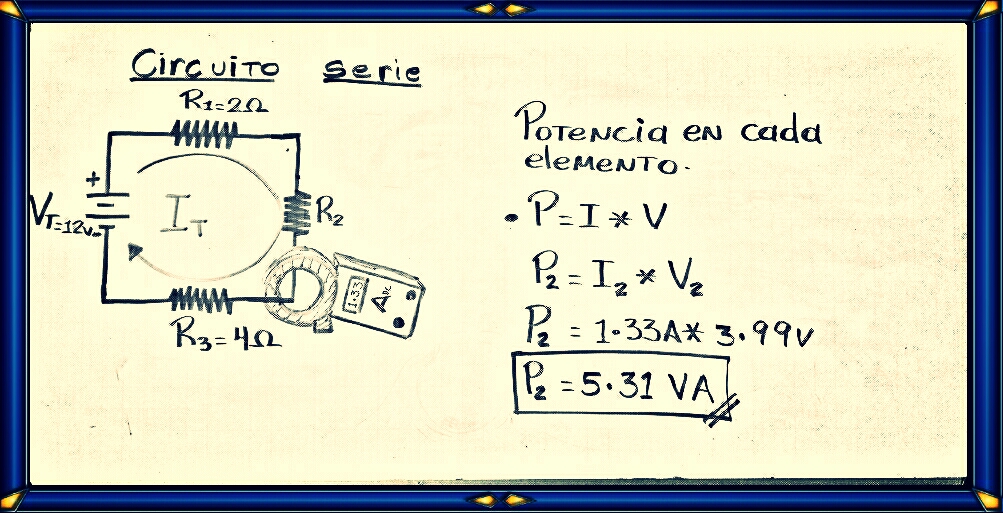 Circuito serie
R1=2Ω
+
VT=12v
IT
R2
1.33 ADC
R3=4Ω
Potencia en cada
elemento.
• P=I * V
P2 = I2 * V2
P2 = 1.33A * 3.99v
P2 = 5.31 VA